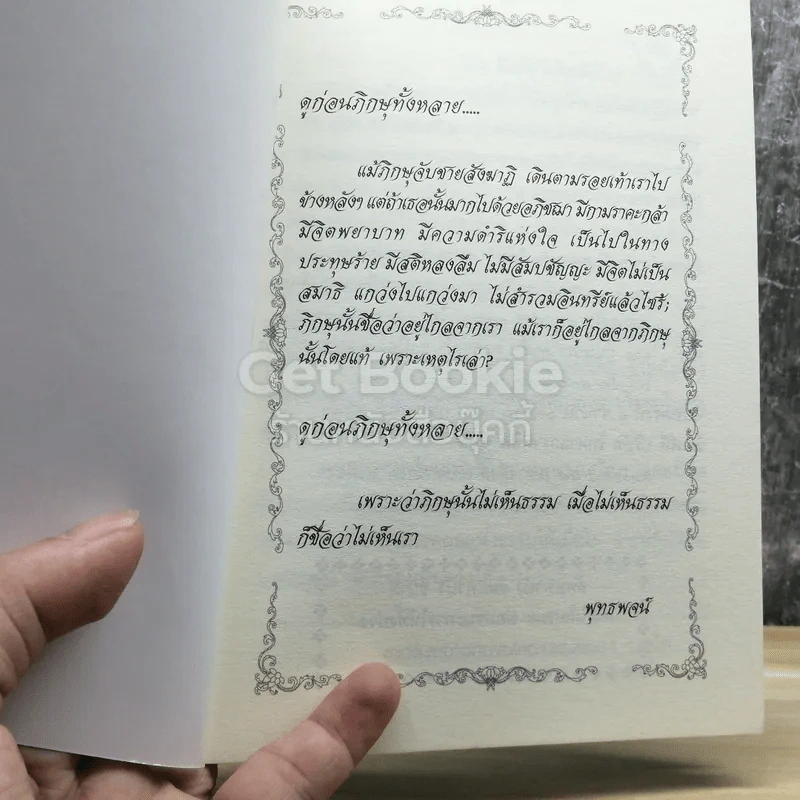 ดูก่อนภิกษุทั้งหลาย.....
แม้ภิกษุจับชายสังฆาฏิ เดินตามรอยเท้าเราไป
ข้างหลังๆ แต่ถ้าเธอนั้นมากไปด้วยอภิชฌา มีกามราคะกล้า
มีจิตพยาบาท มีความดำริแห่งใจ เป็นไปในทาง
ประทุษร้าย มีสติหลงลืม ไม่มีสัมปชัญญะ มีจิตไม่เป็น
สมาธิ แกว่งไปแกว่งมา ไม่สำรวมอินทรีย์แล้วไซร้;
ภิกษุนั้นชื่อว่าอยู่ไกลจากเรา แม้เราก็อยู่ไกลจากภิกษุ
นั้นโดยแท้ เพราะเหตุไรเล่า?
Get Bookie
ร้านหนังสือบุ๊คกี้
ดูก่อนภิกษุทั้งหลาย.....
เพราะว่าภิกษุนั้นไม่เห็นธรรม เมื่อไม่เห็นธรรม
ก็ชื่อว่าไม่เห็นเรา
พุทธพจน์